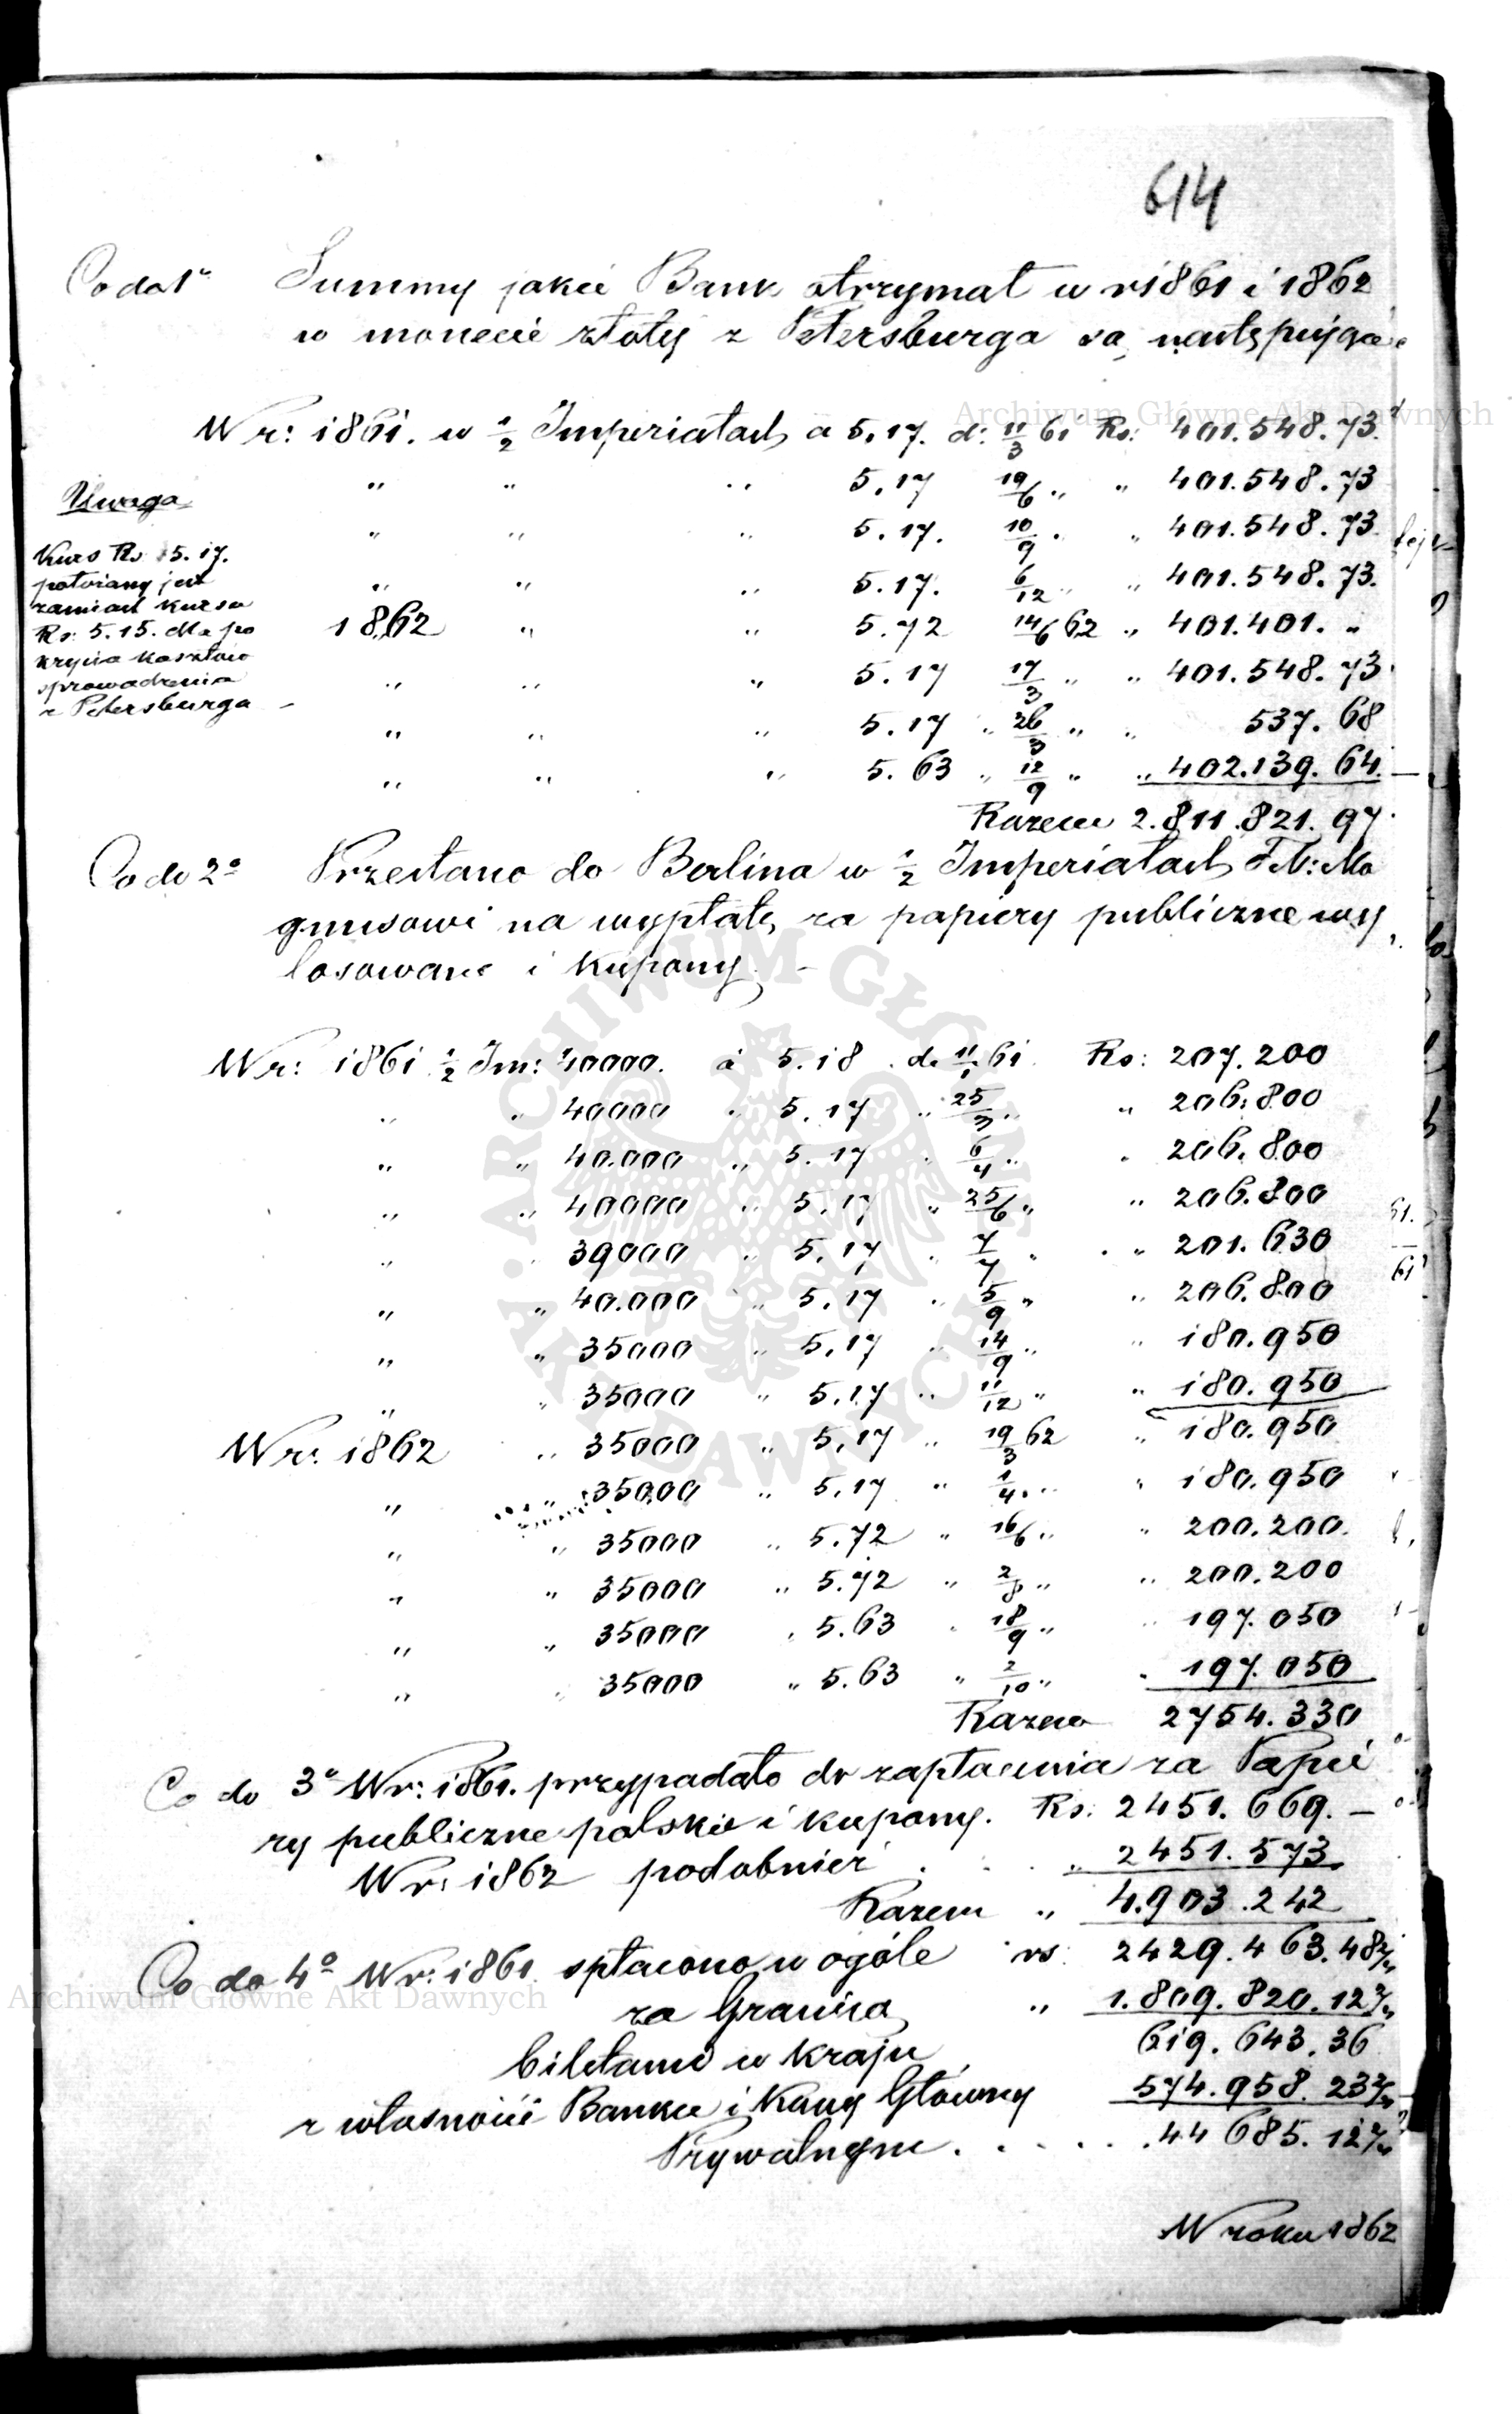 614
Co do 1o Summy jakie Bank otrzymał w r 1861 i 1862
w monecie złotej z Petersburga są następujące
W r: 1861. w 1/2 Imperiałach a 5.17. d: 11/3 61 Rs: 401.548.73.
" " " 5.17 19/6 " " 401.548.73
" " " 5.17. 10/9 " " 401.548.73
" " " 5.17. 6/12 " " 401.548.73.
1862 " " 5.72 14/6 62 " 401.401. "
" " " 5.17 17/3 " " 401.548.73
" " " 5.17 " 26/3 " " 537.68
" " " 5.63 " 12/9 " " 402.139.64.
Razem 2.811.821.97
Uwaga
Kurs Rs 5.17.
policzany jest
zamiast kursu
Rs: 5.15. dla po
krycia kosztów
sprowadzenia
z Petersburga
Co do 2o Przesłano do Berlina w 1/2 Imperiałach F. M: Ma
gnusowi na wypłatę za papiery publiczne wy
losowane i kupony. -
W r: 1861 1/2 Im: 40000. à 5.18 . d. 11/1 61. Rs: 207.200
" " 40000 " 5.17 " 25/3 " " 206.800
" " 40.000 " 5.17 " 6/4 " " 206.800
" " 40000 " 5.17 " 25/6 " " 206.800
" " 39000 " 5.17 " 7/7 " " 201.630
" " 40.000 " 5.17 " 5/9 " " 206.800
" " 35000 " 5.17 " 14/9 " " 180.950
" " 35000 " 5.17 " 11/12 " " 180.950
W r: 1862 " 35000 " 5.17 " 19/3 62 " 180.950
" " 35000 " 5.17 " 1/4 " " 180.950
" " 35000 " 5.72 " 16/6 " " 200.200.
" " 35000 " 5.72 " 2/8 " " 200.200
" " 35000 " 5.63 " 18/9 " " 197.050
" " 35000 " 5.63 " 2/10 " " 197.050
Razem 2754.330
Co do 3o W r: 1861. przypadało do zapłacenia za Papie
ry publiczne polskie i kupony. Rs: 2451.669. -
W r: 1862 podobnież . . . " 2451.573
Razem " 4.903.242
Co do 4o W r: 1861 spłacono w ogóle rs: 2429.463.48 1/2
za Granicą " 1.809.820.12 1/2
619.643.36
biletami w kraju
z własności Banku i Kassy Głównej 574.958.23 1/2
Prywatnym . . . . . 44 685.12 1/2
W roku 1862
Archiwum Główne Akt Dawnych
Archiwum Główne Akt Dawnych
ARCHIWUM GŁÓWNE AKT DAWNYCH